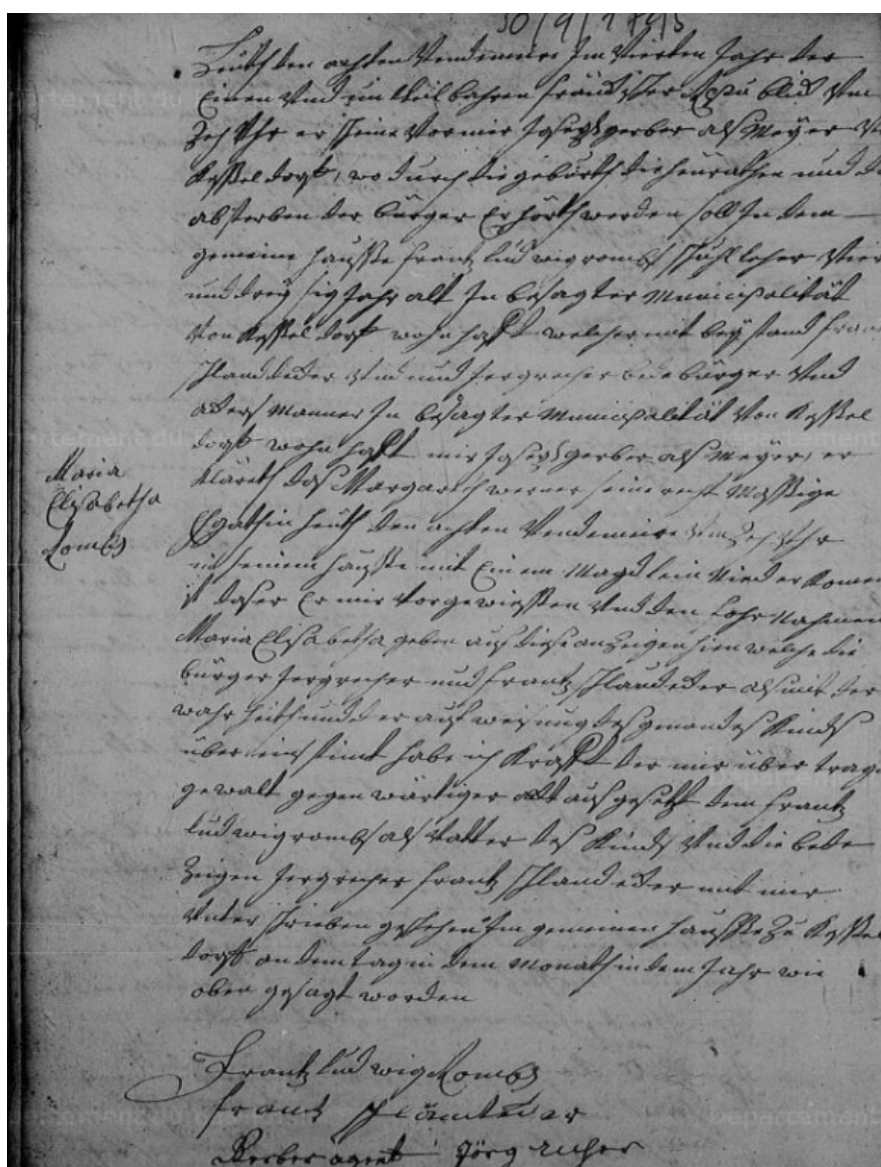 30/9/1795
Heüth den achten Vendemiere Im Vierten Jahr der
Einen Vnd un theil bahren fränckischer Republick Um
Zeh Uhr er scheine Vor mir Joseph gerber als Meyer Von
Kesseldorff, wo durch die gebürth die heürathen und
absterben der bürger Er hörth werden soll In dem
gemeine hausse frantz lud wig rombs schuhl lehrer Vier
und drey sig Jahr alt In besagter Municipalität
Von Kessel dorff wohn hafft welcher mit bey stand frantz
und Jerg recher bede bürger Vnd
ackers Manner In besagter Municipalität Von Kessel
dorff wohn hafft mir Joseph gerber als Meyer, er
Kläreth das Margareth werner seine recht Mässige
Ehgathin heüth den achten Vendemiere Um Zeh Uhr
in seinem hausse mit Einem Mägdlein Nieder Komen
ist daser Er mir Vorgewiessen Vnd den Nahmen
Maria Elisabetha geben auf diese anzeigen hien welche die
bürger Jergrecher und frantz als mit der
wahr heith und der auf weisung des Kinds
über eins stimt habe ich Krafft der mir über tragen
gewalt gegen wärtiger act aufgesetzt dem frantz
lud wig rombs als Vatter des Kinds Vnd die bede
Zeigen Jergrecher frantz mit mir
Vnter schrieben geschehen Im gemeinen hausse Zu Kessel
dorff an dem tag in dem Monath in dem Jahr wie
oben gesagt worden
Maria
Elisabetha
Rombs
Frantz lud wig Rombs
frantz
Gerber agent Jörg recher